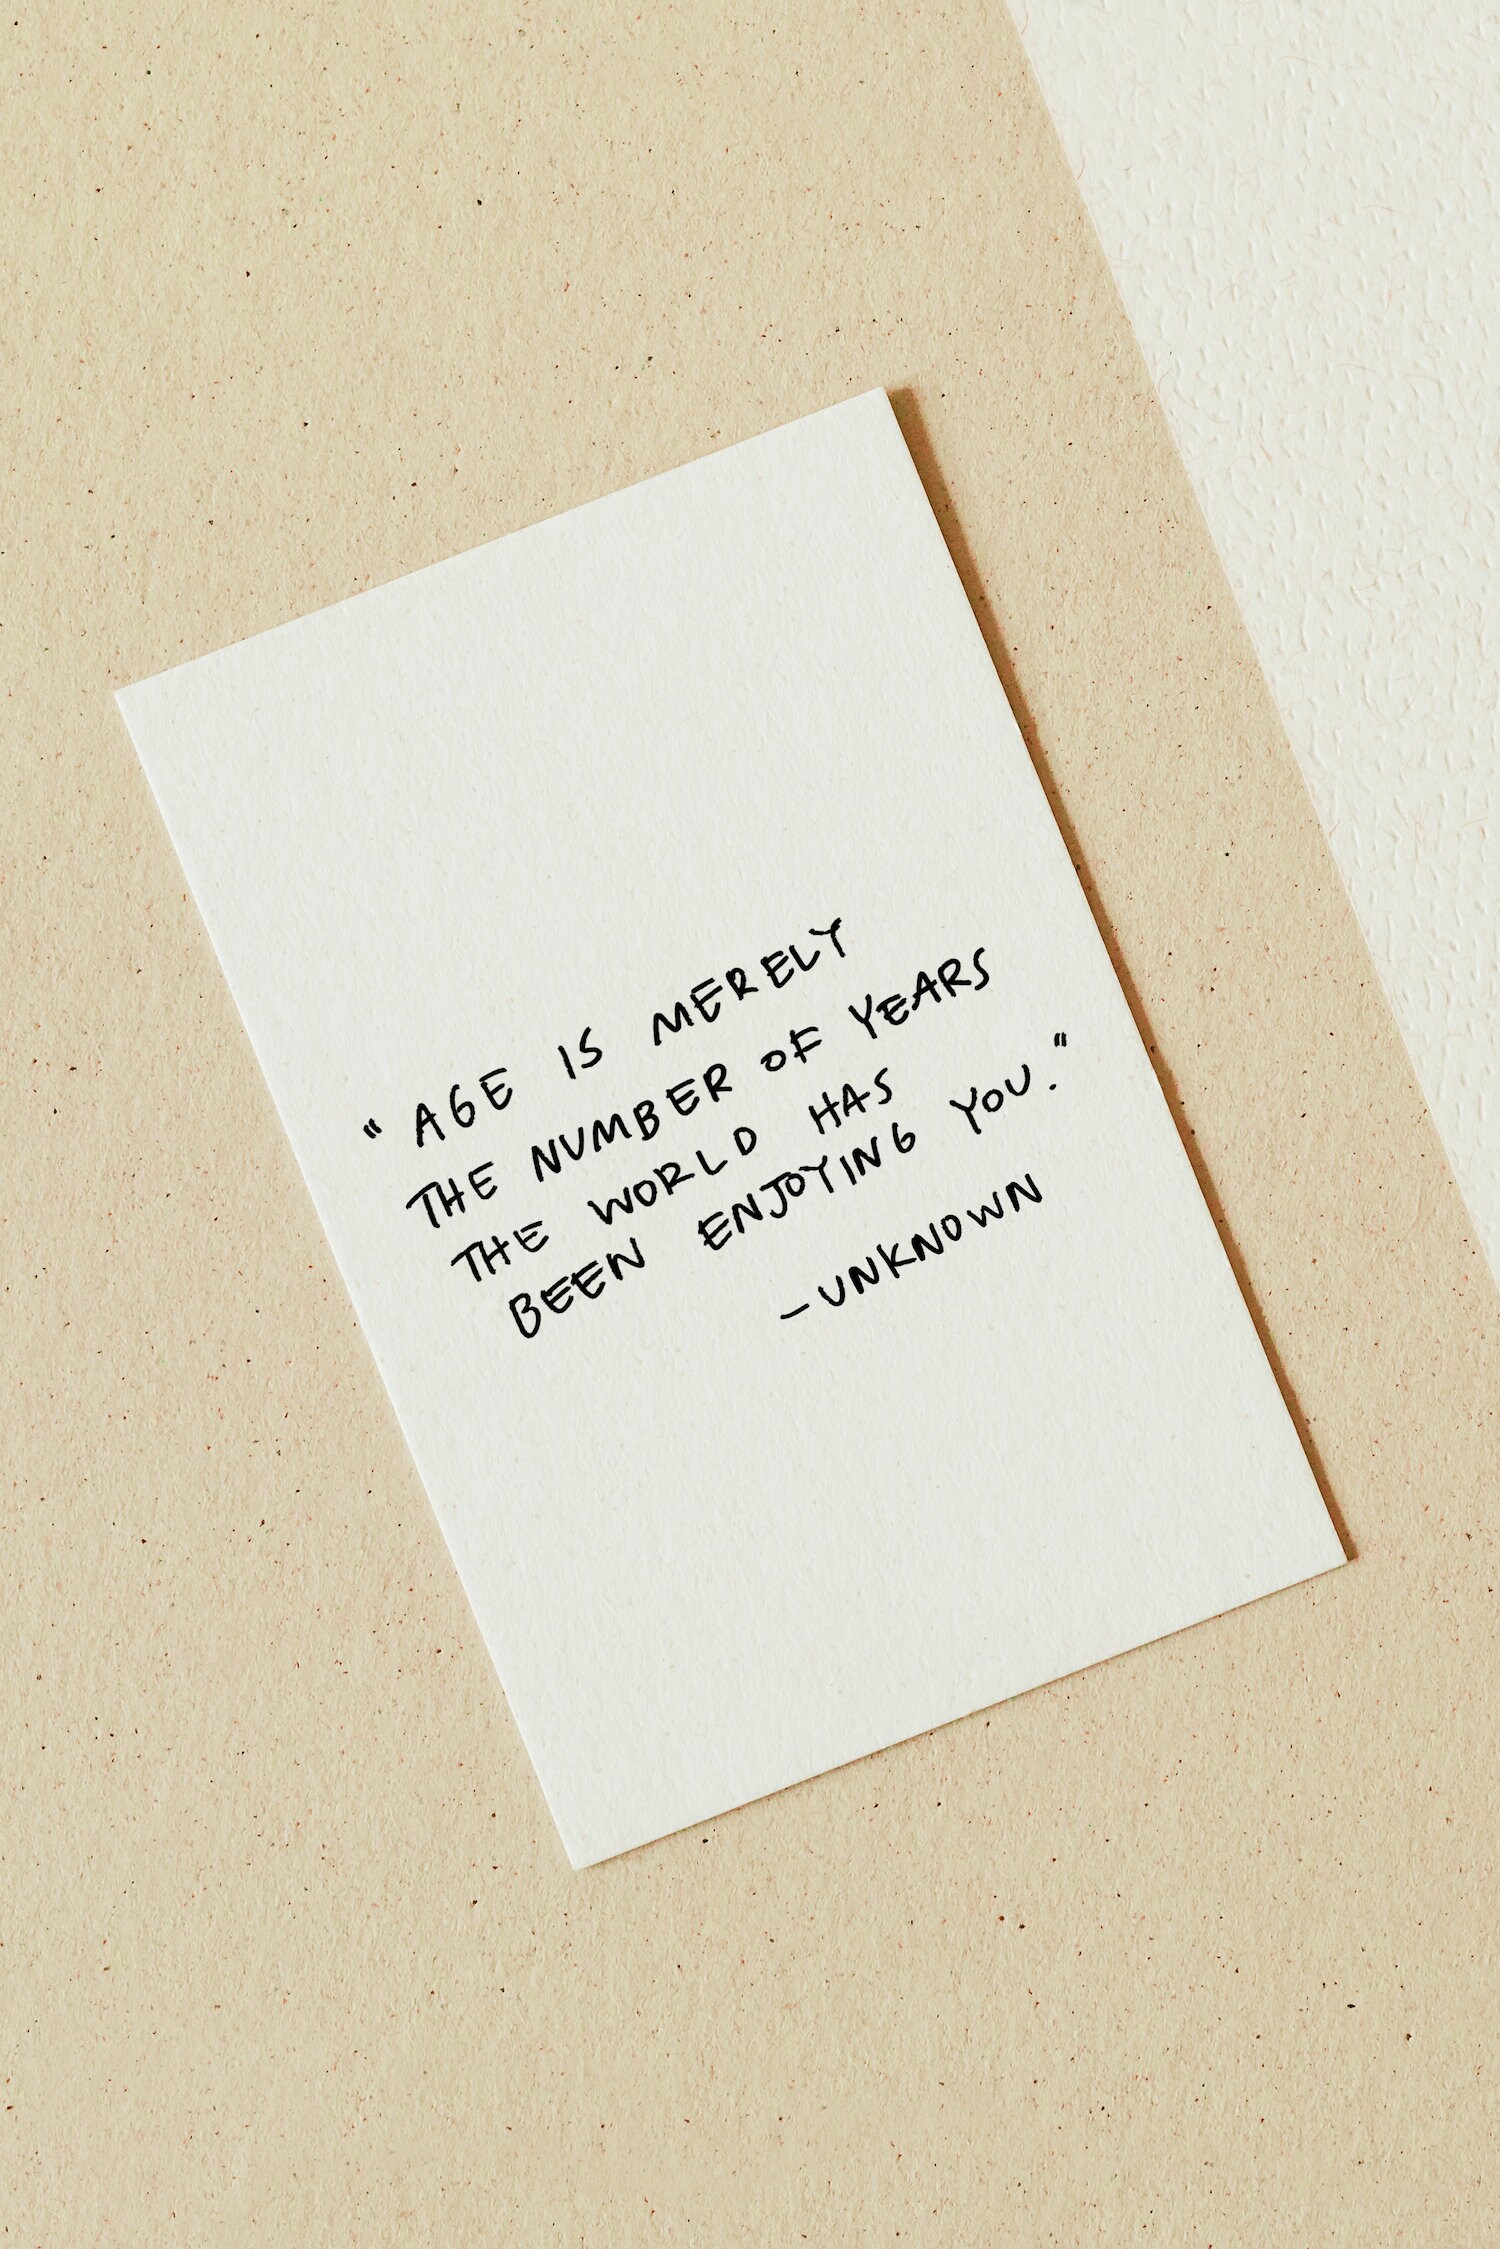 "AGE IS MERELY
THE NUMBER OF YEARS
THE WORLD HAS
BEEN ENJOYING YOU."
-UNKNOWN